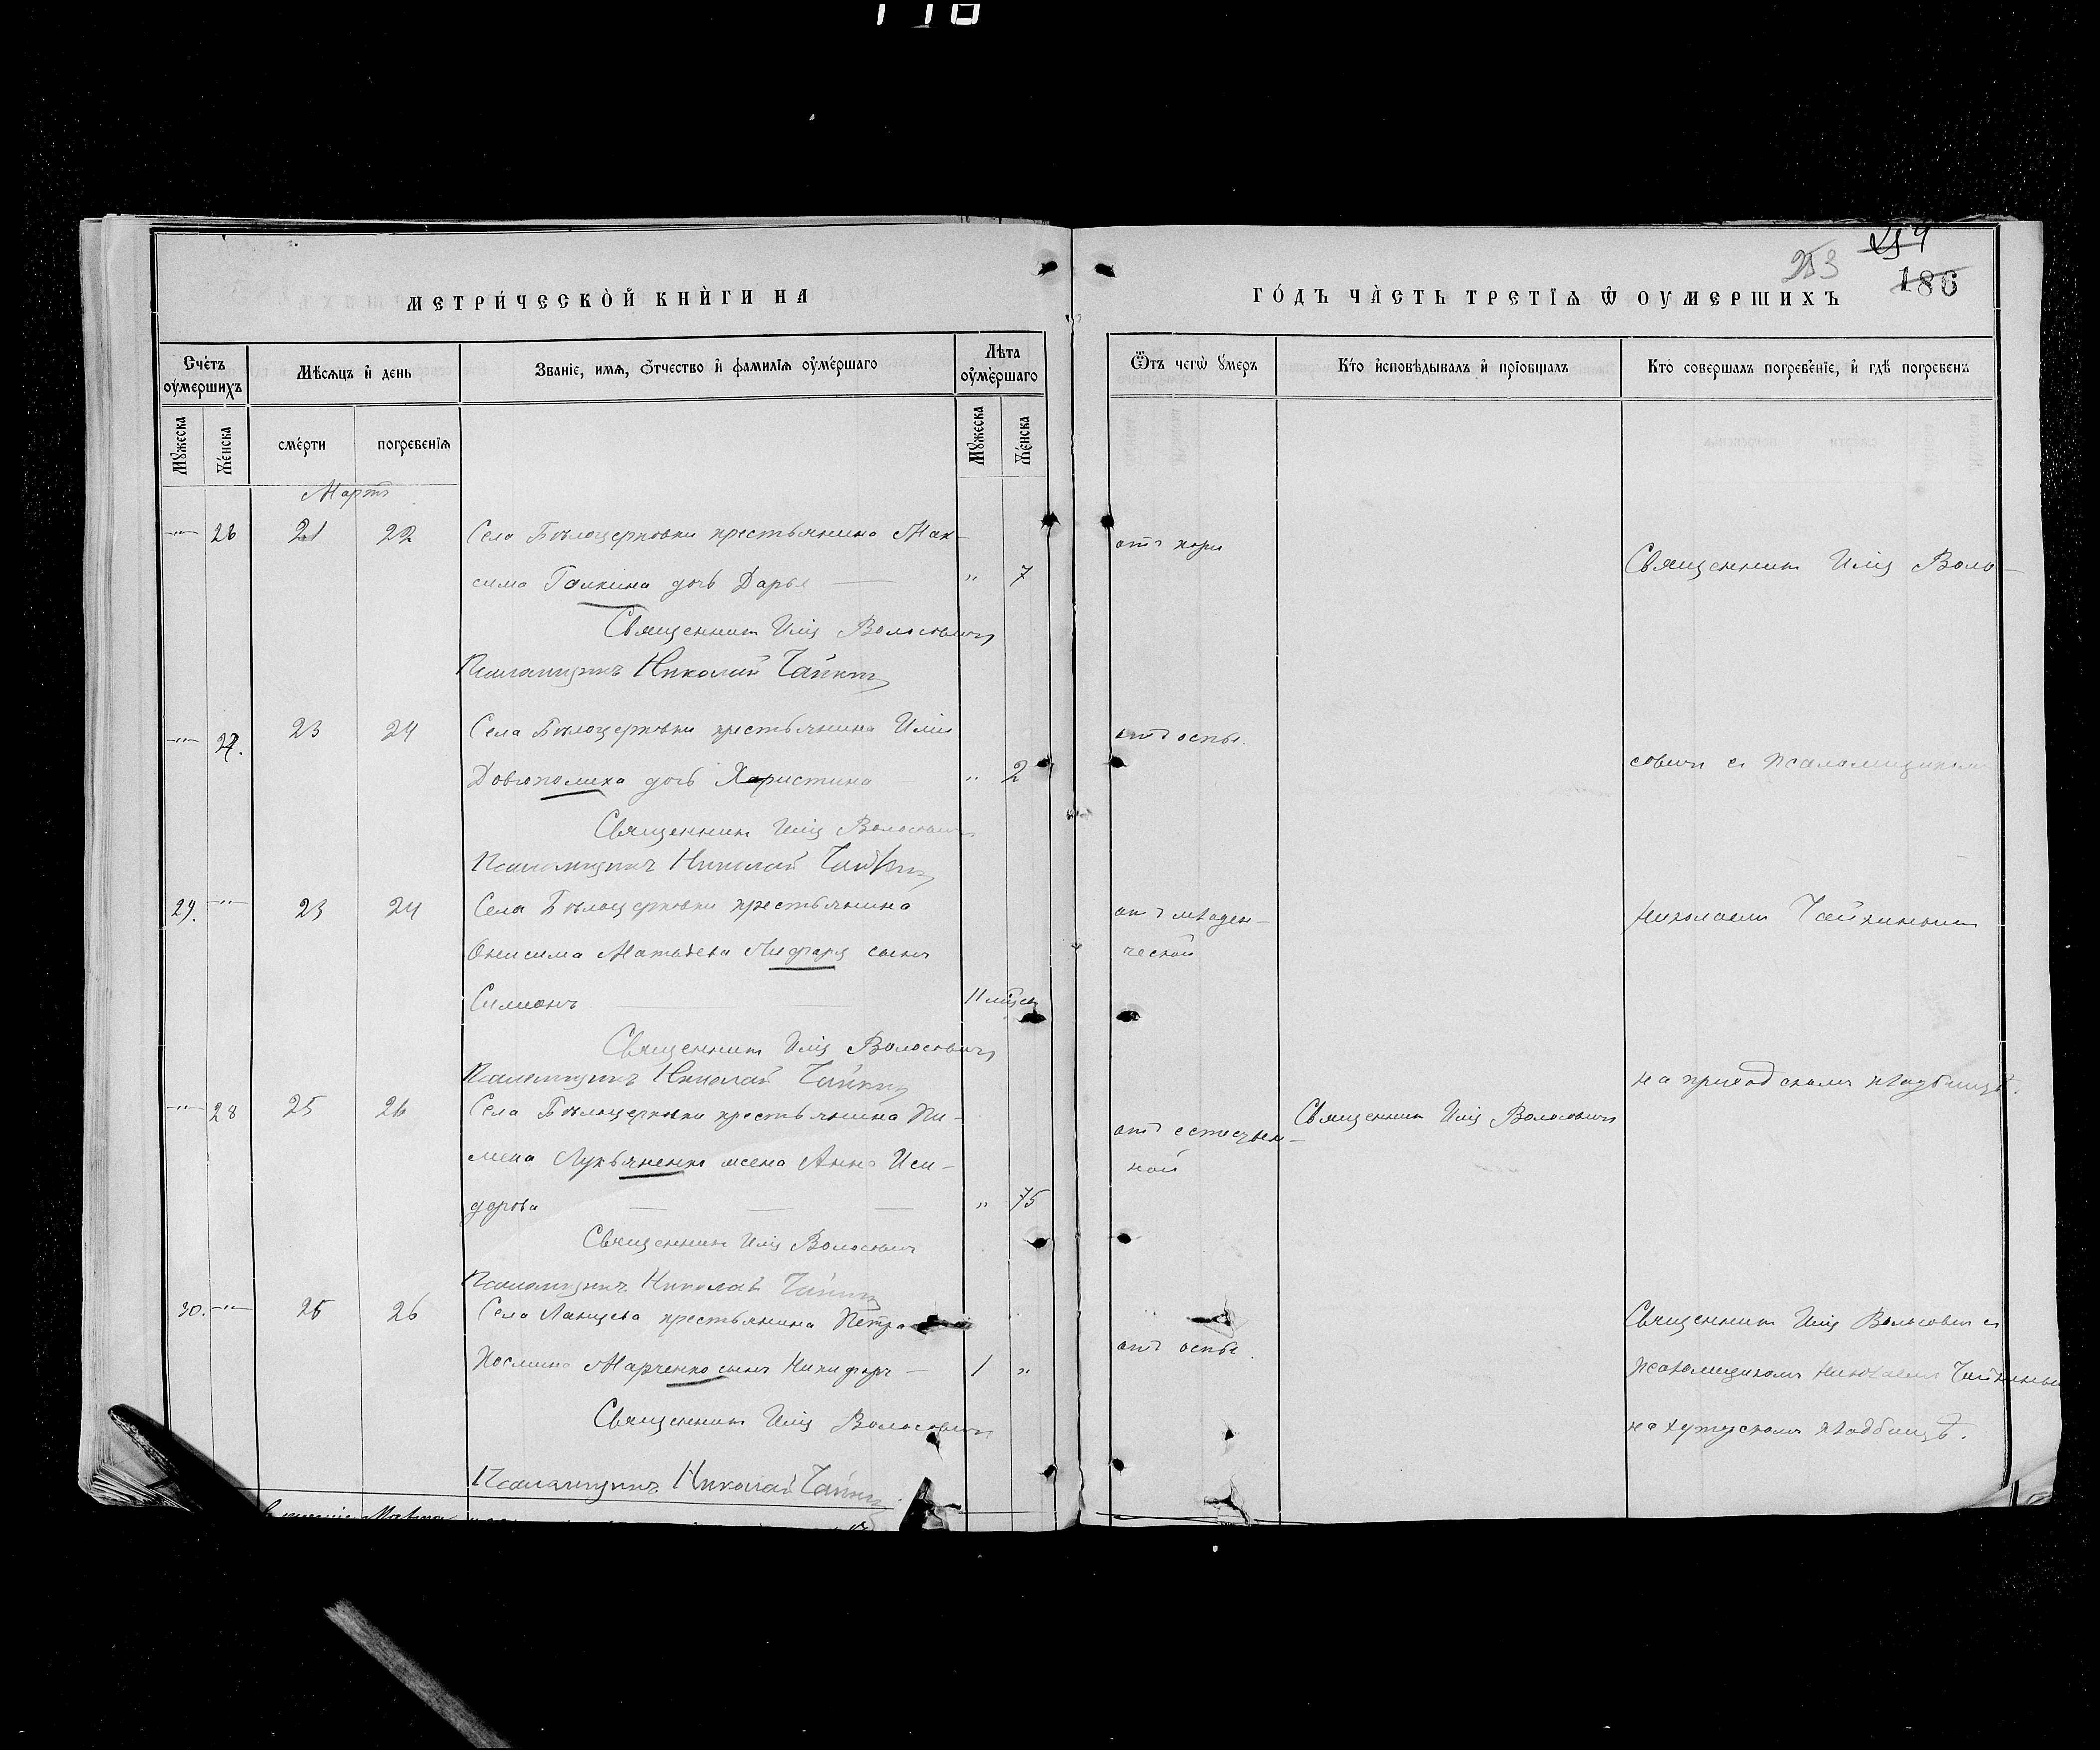 МЕТРИЧЕСКОЙ КНИГИ НА
ГОДЪ ЧАСТЬ ТРЕТІѦ Ѡ ОУМЕРШИХЪ
253
254
186
Счетъ оумершихъ
Мѣсѧцъ и день
Званіе, имѧ, отчество и фамиліѧ оумершаго
Лѣта оумершаго
Ѿтъ чегѡ умеръ
Кто исповѣдывалъ и пріобщалъ
Кто совершалъ погребеніе, и гдѣ погребенъ
Мужеска
Женска
смерти
погребеніѧ
Мужеска
Женска
Мартъ
26 21 22 Села Бѣлоцерковки крестьянина Мак-
сима Галкина дочь Дарья " 7
отъ кори
Священникъ Илія Воло-
Священникъ Илія Волосовичъ
Псаломщикъ Николай Чайкинъ
27. 23 24 Села Бѣлоцерковки крестьянина Иліи
Довгополиха дочь Христина " 2
отъ оспы.
совичъ съ псаломщикомъ
Священникъ Илія Волосовичъ
Псаломщикъ Николай Чайкинъ
29. 23 24 Села Бѣлоцерковки крестьянина
Онисима Матвѣева Лифаря сынъ
Симионъ 11 мѣсяц
отъ младен-
ческой
Николаемъ Чайкинымъ
Священникъ Илія Волосовичъ
Псаломщикъ Николай Чайкинъ
на приходскомъ кладбищѣ.
28 25 26 Села Бѣлоцерковки крестьянина Пи-
мена Лукьяненко жена Анна Иси-
дорова " 75
отъ естествен-
ной
Священникъ Илія Волосовичъ
Священникъ Илія Волосовичъ
Псаломщикъ Николай Чайкинъ
30. 25 26 Села Ланцева крестьянина Петра
Марченко сынъ Никифоръ 1 "
отъ оспы.
Священникъ Илія Волосовичъ съ
псаломщикомъ Николаемъ Чайкинымъ
на хуторскомъ кладбищѣ.
Священникъ Илія Волосовичъ
Псаломщикъ Николай Чайкинъ